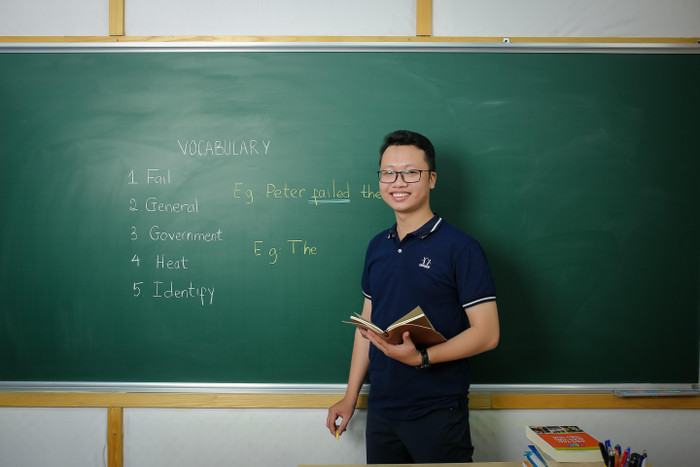 VOCABULARY
1. Fail
Eg Peter failed the
2. General
3 Government
Eg: The
4 Heat
5. Identify